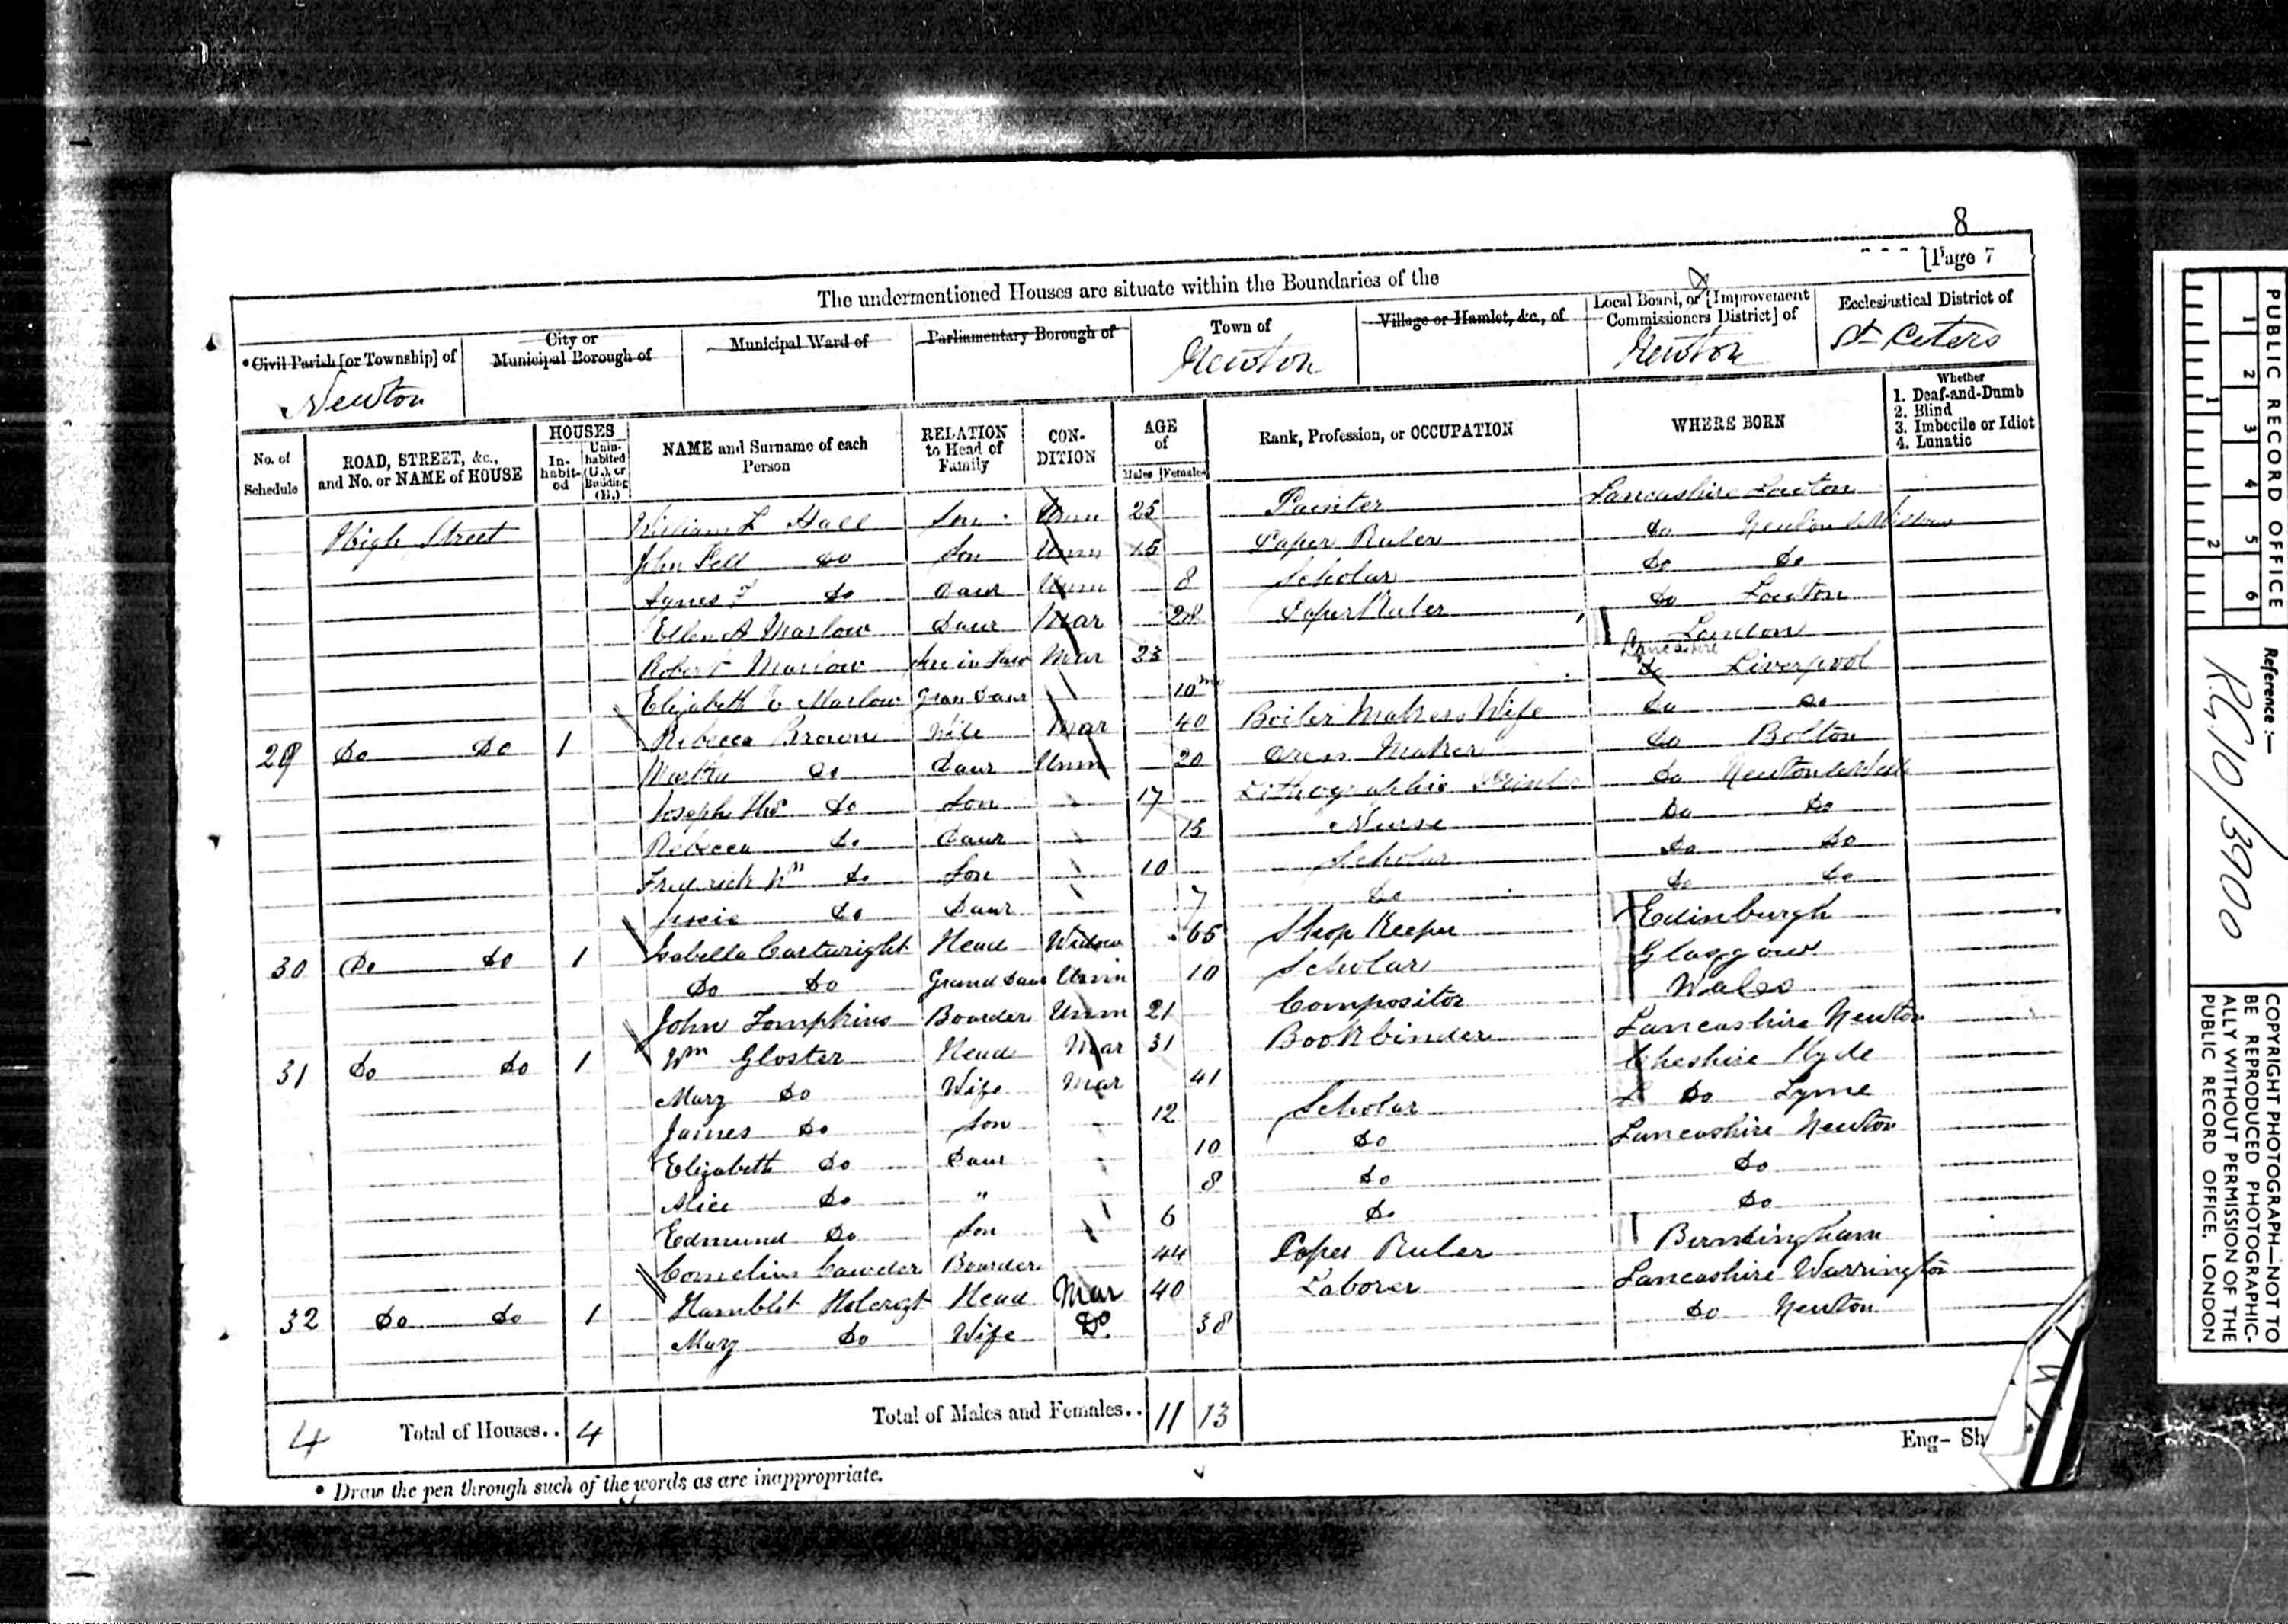 8
[Page 7
The undermentioned Houses are situate within the Boundaries of the
* Civil Parish [or Township] of
City or Municipal Borough of
Municipal Ward of
Parliamentary Borough of
Town of
Village or Hamlet, &c., of
Local Board, or [Improvement Commissioners District] of
Ecclesiastical District of
Newton
Newton
Newton
St Peters
No. of Schedule
ROAD, STREET, &c., and No. or NAME of HOUSE
HOUSES
In-habit-ed
Unin-habited (U.), or Building (B.)
NAME and Surname of each Person
RELATION to Head of Family
CON-DITION
AGE of
Males
Females
Rank, Profession, or OCCUPATION
WHERE BORN
Whether
1. Deaf-and-Dumb
2. Blind
3. Imbecile or Idiot
4. Lunatic
High Street William L Hall Son Unm 25 Painter Lancashire Lowton
John Do Son Unm 15 Paper Ruler Do Newton
Agnes F Do Daur Unm 8 Scholar Do Do
Ellen A Marlow Daur Mar 28 Paper Ruler Do Lowton
Robert Marlow Son in Law Mar 23 London
Elizabeth E Marlow Gran Daur 10 mo Lancashire Do Liverpool
29 Do Do 1 Rebecca Brown Wife Mar 40 Boiler Makers Wife Do Do
Martha Do Daur Unm 20 Dress Maker Do Bolton
Joseph Thos Do Son 17 Lithographic Printer Do Newton le Will
Rebecca Do Daur 15 Nurse Do Do
Frederick Wm Do Son 10 Scholar Do Do
Jessie Do Daur 7 Do Do Do
30 Do Do 1 Isabella Cartwright Head Widow 65 Shop Keeper Edinburgh
Do Do Grand Daur Unm 10 Scholar Glasgow
John Tompkins Boarder Unm 21 Compositor Wales
31 Do Do 1 Wm Gloster Head Mar 31 Bookbinder Lancashire Newton
Mary Do Wife Mar 41 Cheshire Hyde
James Do Son 12 Scholar Do Lyme
Elizabeth Do Daur 10 Do Lancashire Newton
Alice Do " 8 Do Do
Edmund Do Son 6 Do Do
Cornelius Cawder Boarder 44 Paper Ruler Birmingham
32 Do Do 1 Hamblet Holcroft Head Mar 40 Laborer Lancashire Warrington
Mary Do Wife Do 38 Do Newton
4 Total of Houses.. 4 Total of Males and Females.. 11 13
Eng- Sh
* Draw the pen through such of the words as are inappropriate.
PUBLIC RECORD OFFICE
1 2 3 4 5 6
1 2
Reference :-
RG 10/3900
COPYRIGHT PHOTOGRAPH—NOT TO
BE REPRODUCED PHOTOGRAPHIC-
ALLY WITHOUT PERMISSION OF THE
PUBLIC RECORD OFFICE, LONDON